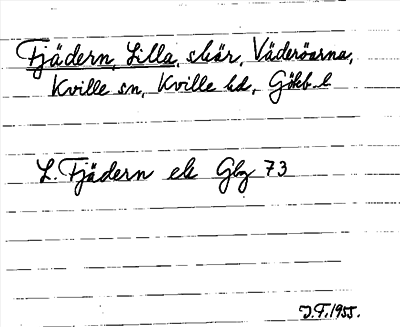 Fjädern, Lilla, skär, Väderöarna,
Kville sn, Kville hd, Götb. l
L. Fjädern ek Gbg 73
J.F. 1955.